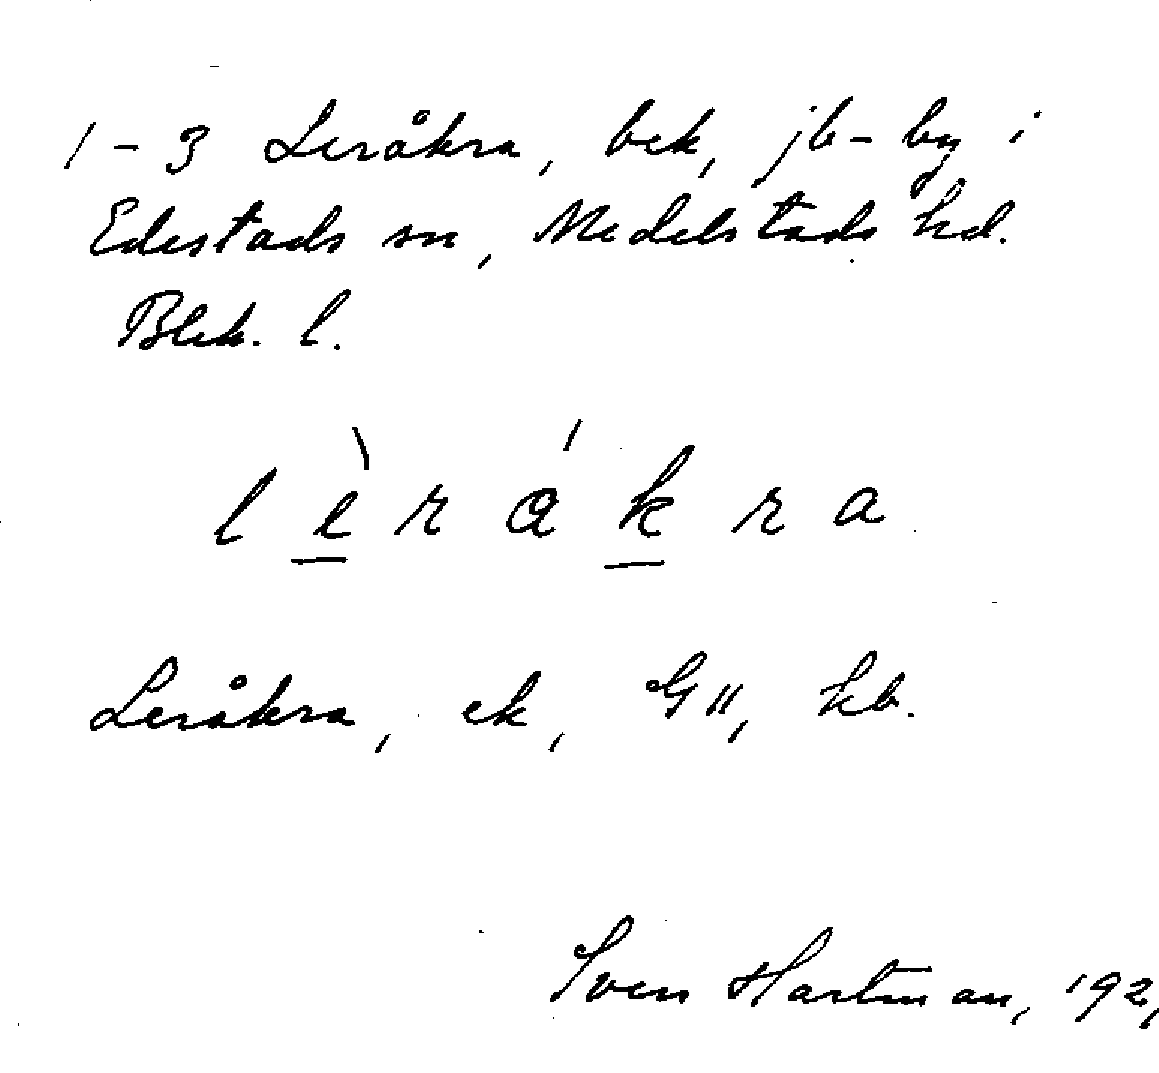 1-3 Leråkra, bek, jb-by i
Edestads sn, Medelstads hd.
Blek. l.
lèrákra
Leråkra, ek, G 11, kb.
Sven Hartman, 192,